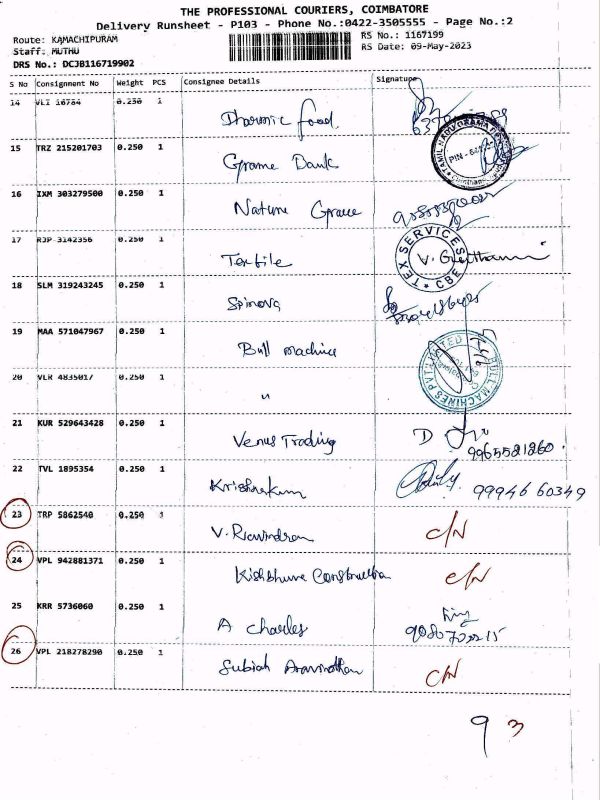 THE PROFESSIONAL COURIERS, COIMBATORE
Delivery Runsheet - P103 - Phone No.:0422-3505555 - Page No.:2
Route: KAMACHIPURAM
Staff: MUTHU
RS No.: 1167199
RS Date: 09-May-2023
DRS No.: DCJB116719902
S No Consignment No Weight PCS Consignee Details Signature
14 VLI 16784 0.250 1 Dharmic food.
15 TRZ 215201703 0.250 1 Grame Bank
16 IXM 303279500 0.250 1 Nature Grave
17 RJP 3142356 0.250 1 Textile TEX SERVICES CBE V. Geethamni
18 SLM 319243245 0.250 1 Spinova
19 MAA 571047967 0.250 1 Bull machine BULL MACHINES PVT LIMITED
20 VLR 4835017 0.250 1 "
21 KUR 529643428 0.250 1 Venus Trading 9965581260.
22 TVL 1895354 0.250 1 Krishnakum 99946 60349
23 TRP 5862540 0.250 1 V. Ravindran C/N
24 VPL 942881371 0.250 1 Kishbhuve Construction C/N
25 KRR 5736060 0.250 1 A Charles
26 VPL 218278290 0.250 1 Subiah Aravindhan C/N
9 3